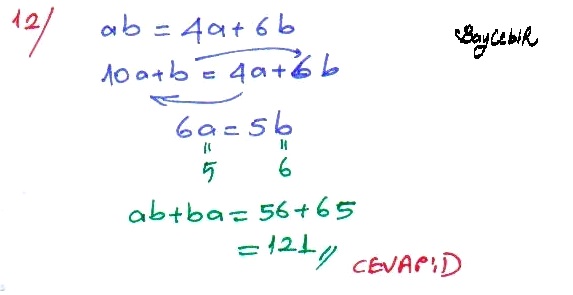 12/
BaycebiR
ab = 4a + 6b
10a + b = 4a + 6b
6a = 5b
" "
5 6
ab + ba = 56 + 65
= 121 //
CEVAP: D